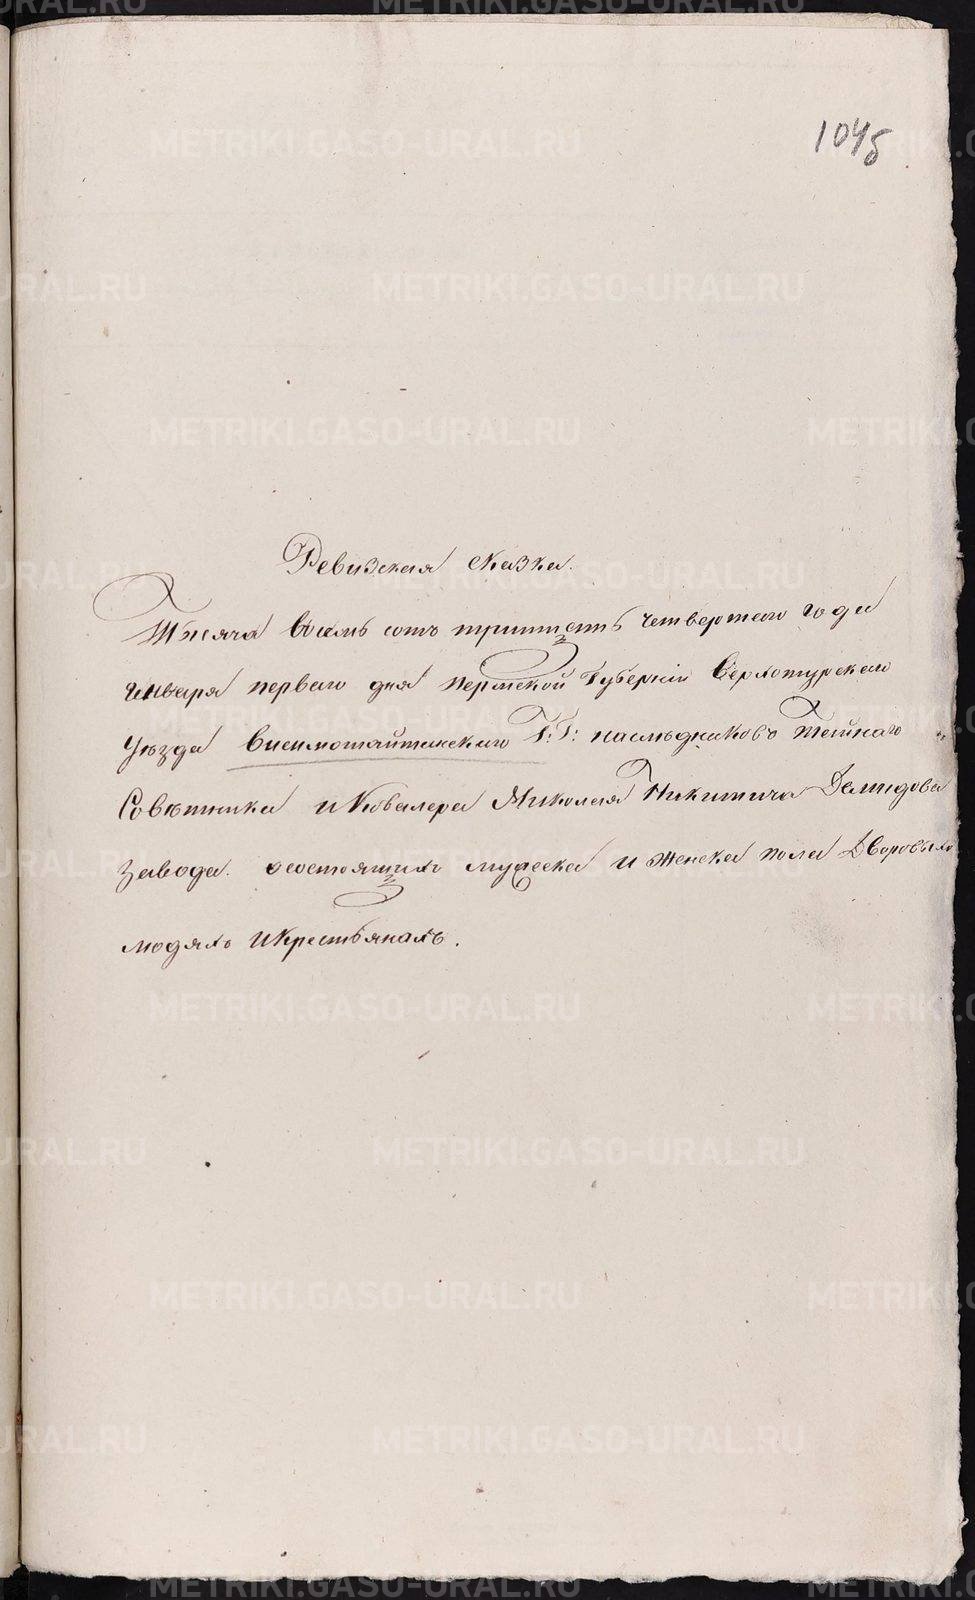 1048
Ревизская сказка.
Тысяча восемь сотъ тритцать четвертаго года
Генваря перваго дня Пермской Губерніи Верхотурскаго
Уѣзда Висимошайтанскаго Г.Г: наслѣдниковъ Тайнаго
Совѣтника и Кавалера Николая Никитича Демидова
завода. о состоящихъ мужеска и женска пола дворовыхъ
людяхъ и крестьянахъ.
METRIKI.GASO-URAL.RU